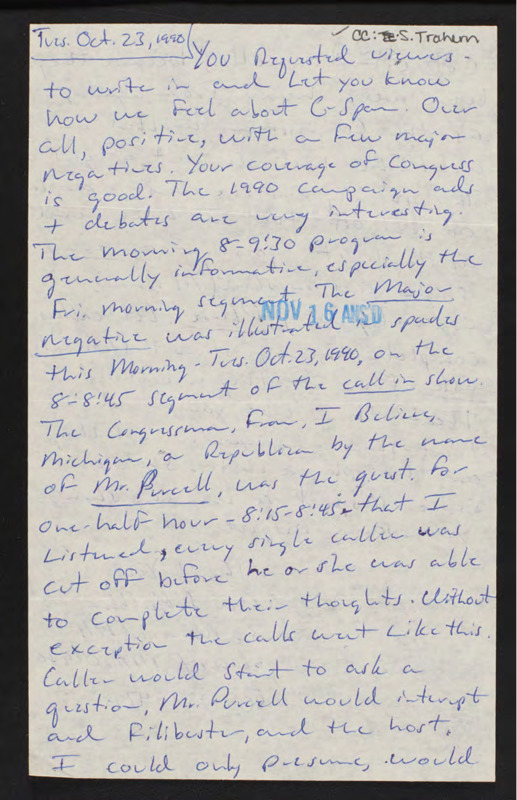 Tues. Oct. 23, 1990
✓ CC: S. Trahern
You Requested viewers -
to write in and Let you know
how we feel about C-Span. Over
all, positive, with a few major
negatives. Your coverage of Congress
is good. The 1990 campaign ads
+ debates are very interesting.
The morning 8-9:30 program is
generally informative, especially the
Fri. morning segment. The Major
NOV 16 ANS'D
negative was illustrated in spades
this Morning - Tues. Oct. 23, 1990, on the
8-8:45 segment of the call in show.
The Congressman, from, I Believe,
Michigan, a Republican by the name
of Mr. Purcell, was the guest. For
one-half hour - 8:15-8:45 - that I
Listened, every single caller was
cut off before he or she was able
to complete their thoughts. Without
exception the calls went Like this.
Caller would start to ask a
question, Mr. Purcell would interupt
and Filibuster, and the host,
I could only presume, would